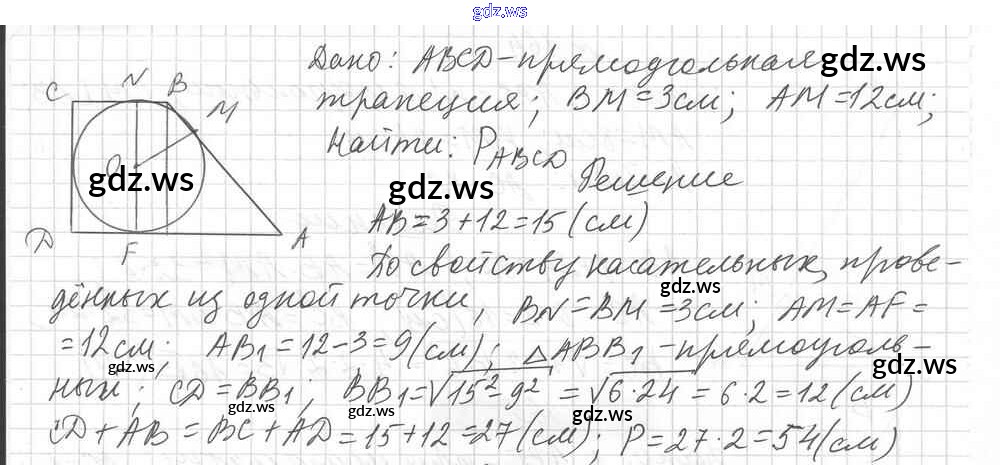 gdz.ws
Дано: ABCD - прямоугольная
gdz.ws
трапеция; BM = 3см; AM = 12см;
gdz.ws
Найти: P_ABCD
Решение
gdz.ws
gdz.ws
C N B M
O
D F A
AB = 3 + 12 = 15 (см)
По свойству касательных, прове-
gdz.ws
дённых из одной точки, BN = BM = 3см; AM = AF =
= 12см; AB₁ = 12 - 3 = 9 (см); △ABB₁ - прямоуголь-
gdz.ws
gdz.ws
ный; CD = BB₁; BB₁ = √15² - 9² = √6·24 = 6·2 = 12 (см)
gdz.ws
gdz.ws
CD + AB = BC + AD = 15 + 12 = 27 (см); P = 27·2 = 54 (см)
gdz.ws
gdz.ws